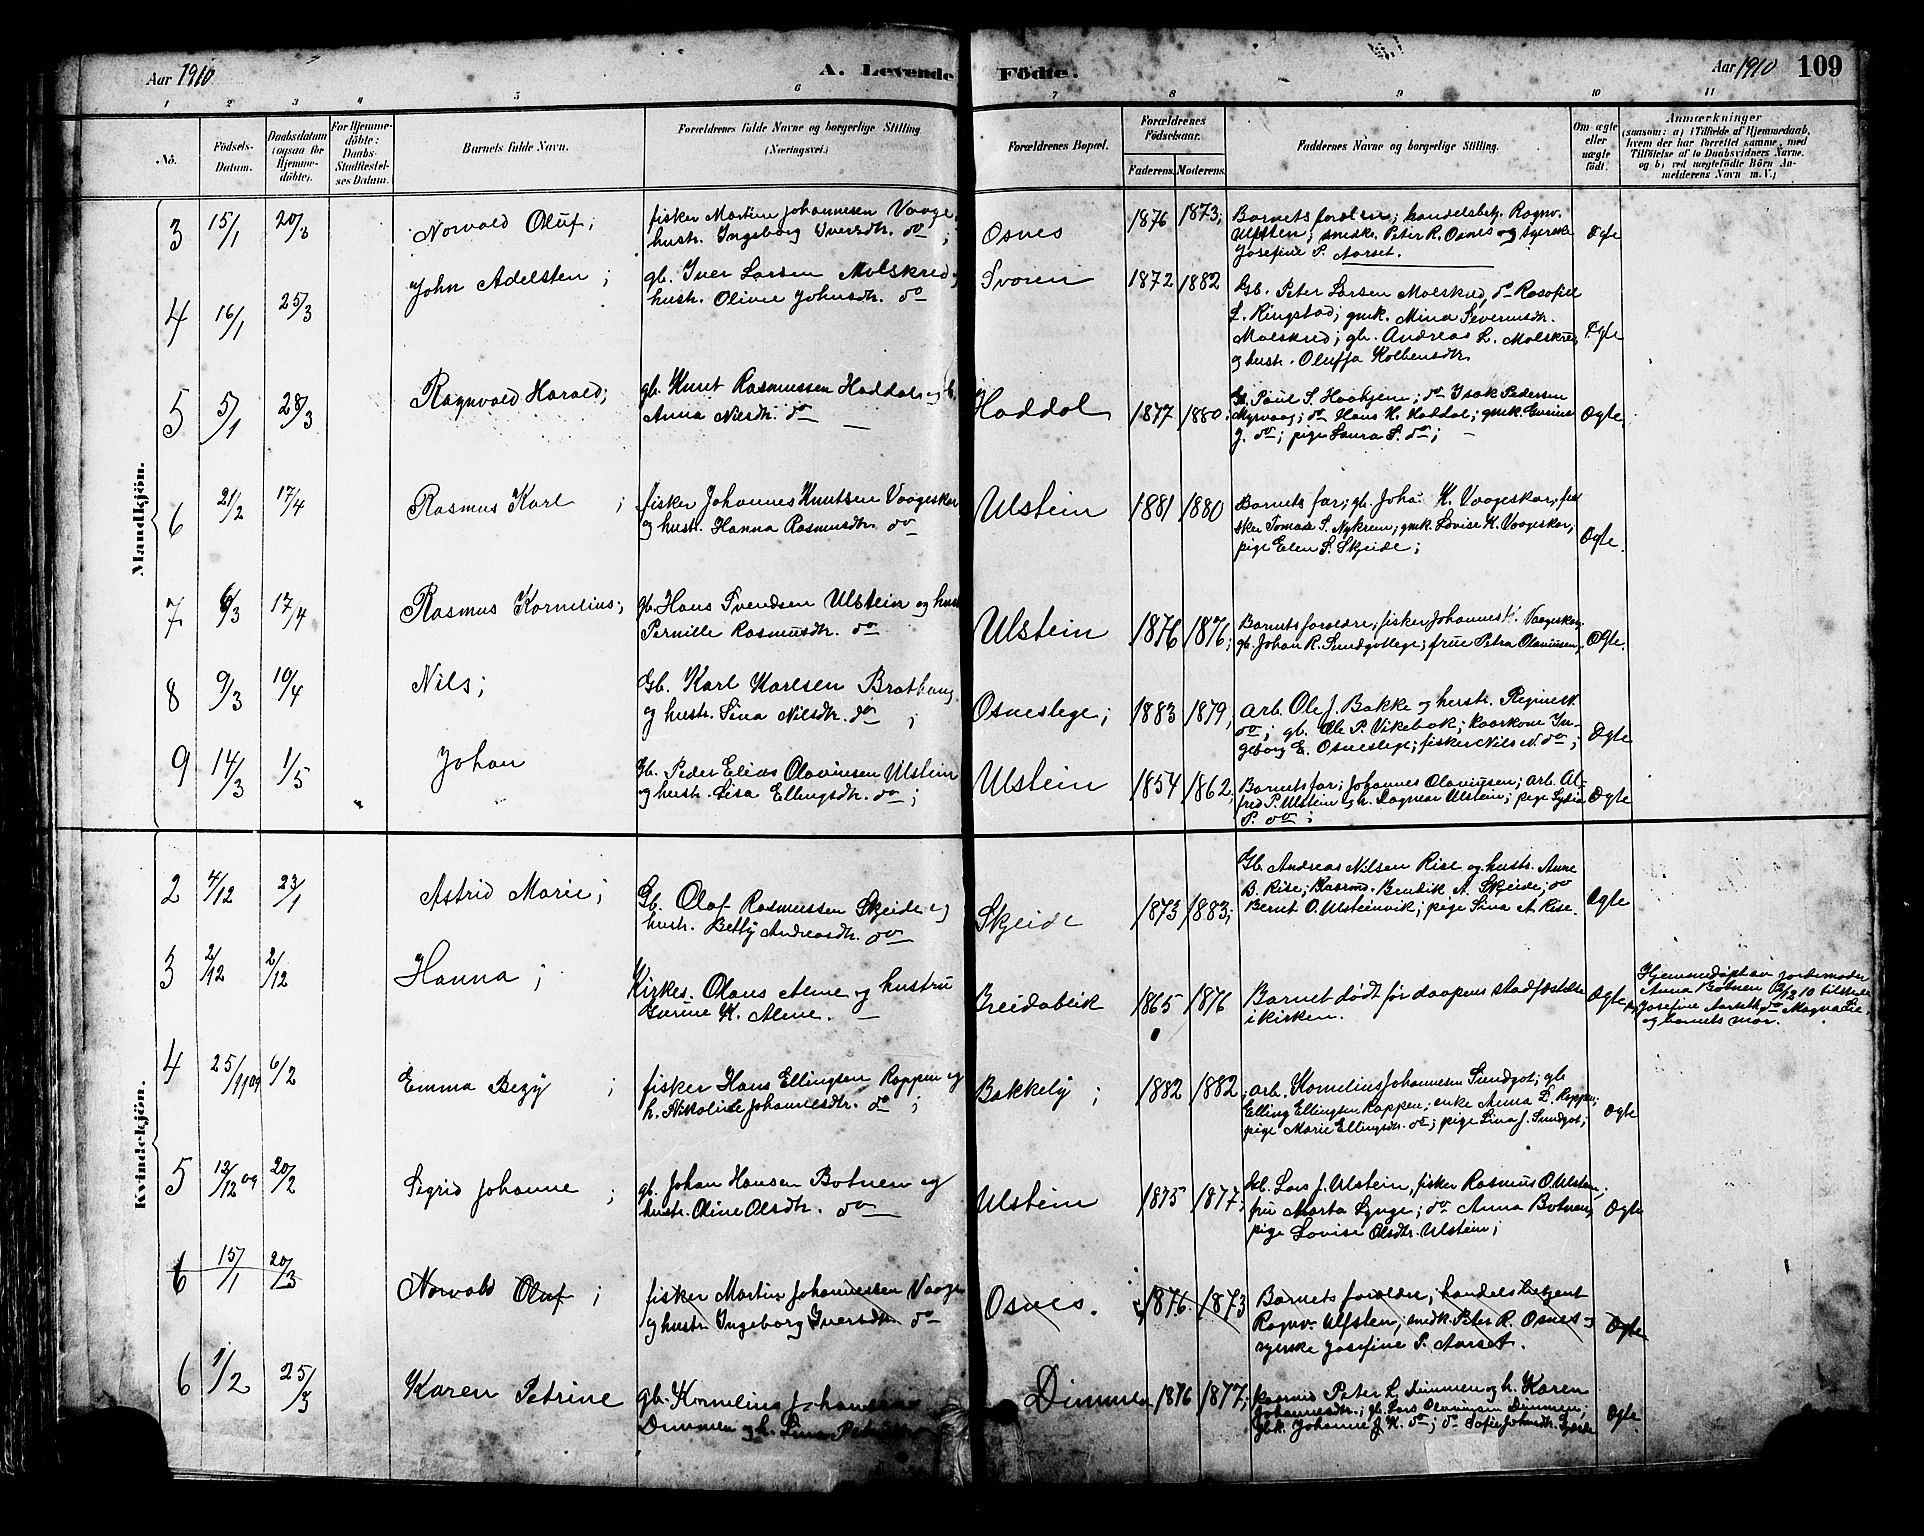 Aar 1910 A. Levende Födte. Aar 1910 109
1 2 3 4 5 6 7 8 9 10 11
No.
Födsels-Datum.
Daabsdatum (ogsaa for Hjemme-döbte).
For Hjemme-döbte: Daabs-Stadfæstel-ses Datum.
Barnets fulde Navn.
Forældrenes fulde Navne og borgerlige Stilling (Næringsvei.)
Forældrenes Bopæl.
Forældrenes Födselsaar.
Faderens. Moderens.
Faddernes Navne og borgerlige Stilling.
Om ægte eller uægte födt.
Anmærkninger
(saasom: a) i Tilfælde af Hjemmedaab, hvem der har forrettet samme, med Tilföielse af to Daabsvidners Navne. og b) ved uægtefödte Börn An-melderens Navn m. V.)
Mandkjön.
3 15/1 20/3 Norvald Oluf; fisker Martin Johannesen Vaage
hustr. Ingeborg Iversdtr. do; Osnes 1876 1873; Barnets forældre; handelsbetj. Ragnv.
Ulfsten; smedsv. Peter R. Osnes og syerske
Josefine P. Aarset. Ægte
4 16/1 25/3 John Adelsten; gb. Iver Larsen Molskred
hustr. Olivie Johnsdtr. do Svoren 1872 1882 Gb. Peter Larsen Molskred, do
L. Ringstad; gmk. Mina Severinsdtr.
Molskred; gb. Andreas L. Molskred
og hustr. Oluffa Kolbensdtr. Ægte
5 5/1 28/3 Ragnvald Harald; gb. Knut Rasmussen Haddal og h.
Anna Nilsdtr. do Haddal 1877 1880. Gb. Paul S. ; do Isak Pedersen
Myrvaag; do Hans K. Haddal; gmk.
J. do; pige Laura S. do; Ægte
6 21/2 17/4 Rasmus Karl; fisker Johannes Knutsen Vaageskar
og hustr. Hanna Rasmusdtr. do Ulstein 1881 1880 Barnets far; gb. Joha. K. Vaageskar; fi-
sker Tomas S. Nykrem; gmk. Lovise K. Vaageskar,
pige Elen S. Skjeide; Ægte.
7 6/3 17/4 Rasmus Kornelius; gb. Hans Svendsen Ulstein og hust
Pernille Rasmusdtr. do Ulstein 1876 1876; Barnets forældre; fisker Johannes K. Vaageskar;
gb. Johan R. Sundgotlege; frue Petra Olavinsen, Ægte.
8 9/3 10/4 Nils; Gb. Karl Karlsen Brathaug
og hustr. Sina Nilsdtr. do; Osneslege; 1883 1879, arb. Ole J. Bakke og hustr. Regine K.
do; gb. Ole P. Vikebak; kaarkone In-
geborg E. Osneslege; fisker Nils N. do; Ægte
9 14/3 1/5 Johan Gb. Peder Elias Olavinsen Ulstein
og hustr. Lisa Ellingsdtr. do; Ulstein 1854 1862, Barnets far; Johannes Olavinsen; arb. Al-
fred P. Ulstein og h. Dagmar Ulstein; pige Lydia
P. do; Ægte
Kvindekjön.
2 4/12 23/1 Astrid Marie; Gb. Olaf Rasmussen Skjeide og
hustr. Betty Andreasdtr. do Skjeide 1873 1883; Gb. Andreas Nilsen Rise og hustr. Anne
B. Rise; Kaarmd. Bendik A. Skjeide; do
Bernt O. Ulsteinvik; pige Sina A. Rise. Ægte
3 2/12 2/12 Hanna; Kirkes. Olaus Alme og hustru
Gurine K. Alme. Breidablik 1865 1876 Barnet dødt før daapens stadfæstelse
i kirken. Ægte Hjemmedøpt av jordemoder
Anna Botnen 2/12 10 tilstede
Josefine Aarseth, do Magna Lie,
og barnets mor.
4 25/11 09 6/2 Emma Bezy; fisker Hans Ellingsen Rappen og
h. Nikoline Johannesdtr. do; Bakkely; 1882 1882, arb. Kornelius Johannesen Sundgot; gb.
Elling Ellingsen Rappen; enke Anna L. Rappen;
pige Marie Ellingsdtr. do; pige Lina J. Sundgot; Ægte
5 12/12 09 20/2 Sigrid Johanne; gb. Johan Hansen Botnen og
hustr. Oline Olsdtr. do Ulstein 1875 1877; gb. Lars J. Ulstein, fisker Rasmus O. Ulstein;
fru Marta Lynge; do Anna Botnen;
pige Lovise Olsdtr. Ulstein; Ægte
6 15/1 20/3 Norvald Oluf; fisker Martin Johannessen Vaage
og hustr. Ingeborg Iversdtr. do Osnes. 1876. 1873 Barnets forældre; handelsbetjent
Ragnv. Ulfsten; smedsv. Peter R. Osnes
syerske Josefine P. Aarset. Ægte
6 1/2 25/3 Karen Petrine gb. Kornelius Johannesen
Dimmen og h. Lina Dimmen 1876 1877; kaarmd Peter L. Dimmen og h. Karen
Johannesdtr.; gb. Lars Olavinsen Dimmen;
gbk. Johanne J. K. do; do Sofie Johansdtr. Ægte